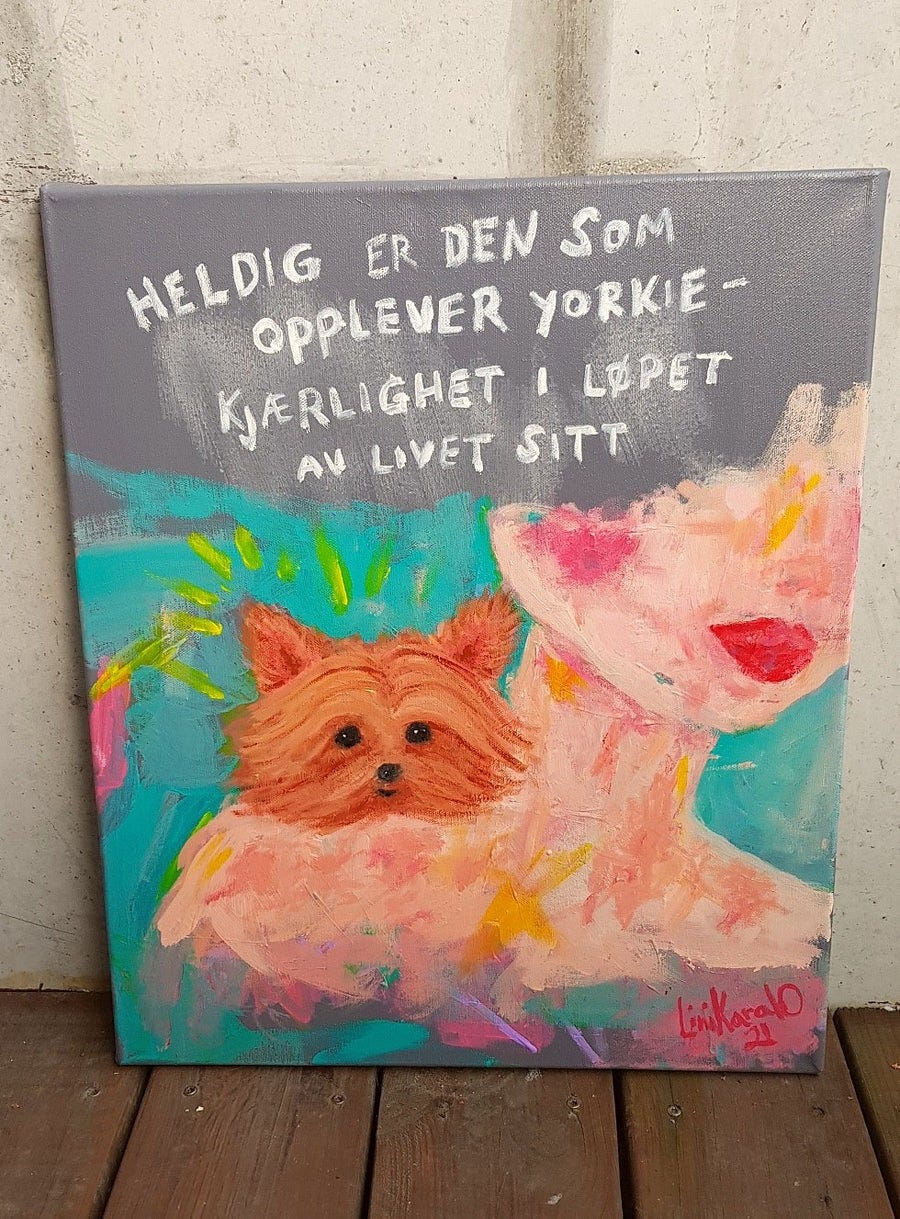 HELDIG ER DEN SOM
OPPLEVER YORKIE-
KJÆRLIGHET I LØPET
AV LIVET SITT
LiniKaraIO
21